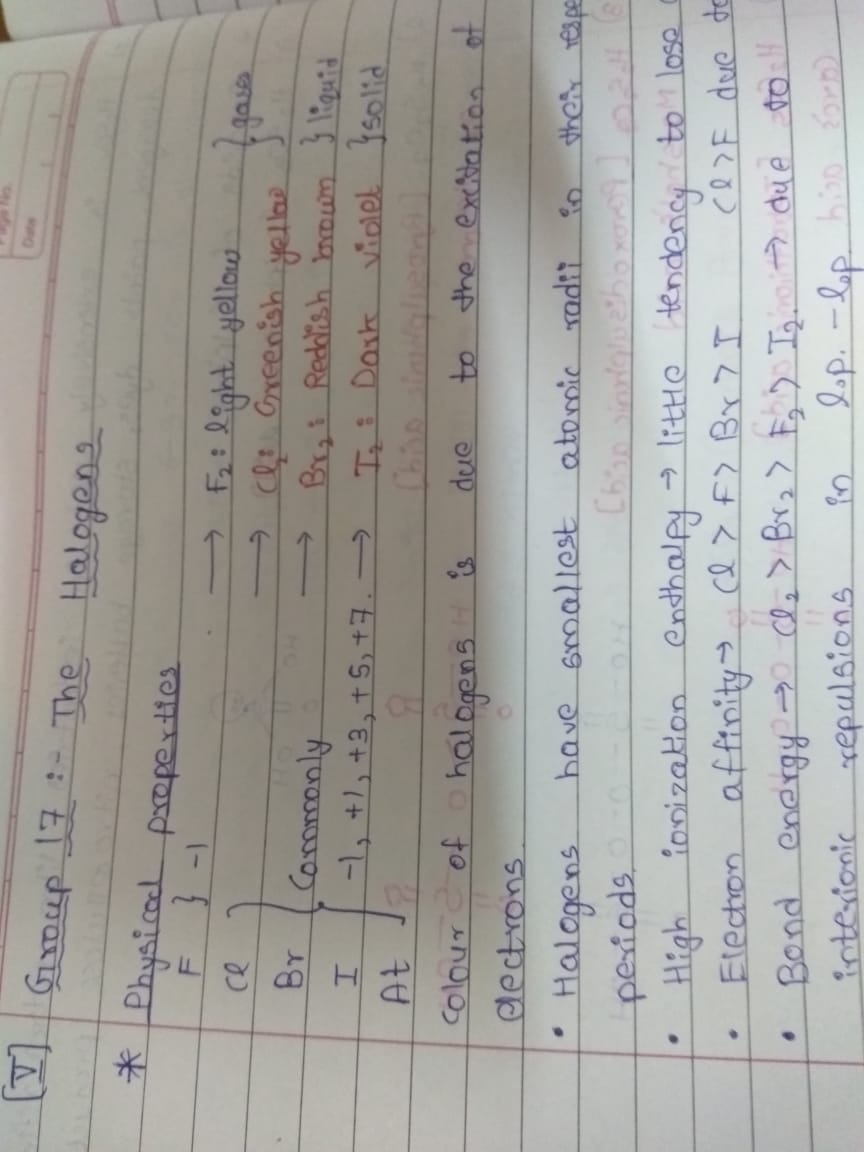 Page No.
Date
[V] Group 17 :- The Halogens
* Physical properties
F } -1 → F₂: light yellow } gases
Cl → Cl₂: Greenish yellow
Br } Commonly → Br₂: Reddish brown } liquid
I -1, +1, +3, +5, +7. → I₂: Dark violet } solid
At
Colour of halogens is due to the excitation of
electrons.
• Halogens have smallest atomic radii in their
periods.
• High ionization enthalpy → little tendency to lose
• Electron affinity → Cl > F > Br > I Cl > F due to
• Bond energy → Cl₂ > Br₂ > F₂ > I₂ → due to
interionic repulsions in l.p. - l.p.